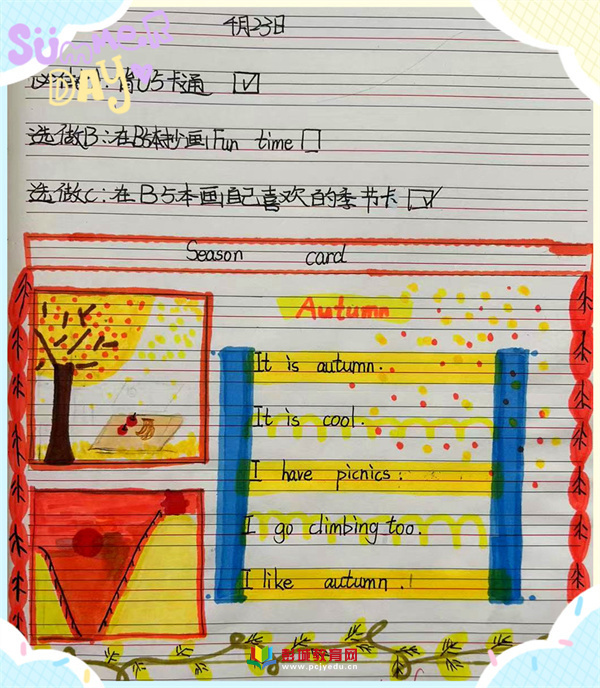 Summer
DAY
4月23日
背U5卡通
选做B:在B5本抄画Fun time
选做C:在B5本画自己喜欢的季节卡
Season card
Autumn
It is autumn.
It is cool.
I have picnics.
I go climbing too.
I like autumn.
彭城教育网
www.pcjyedu.cn